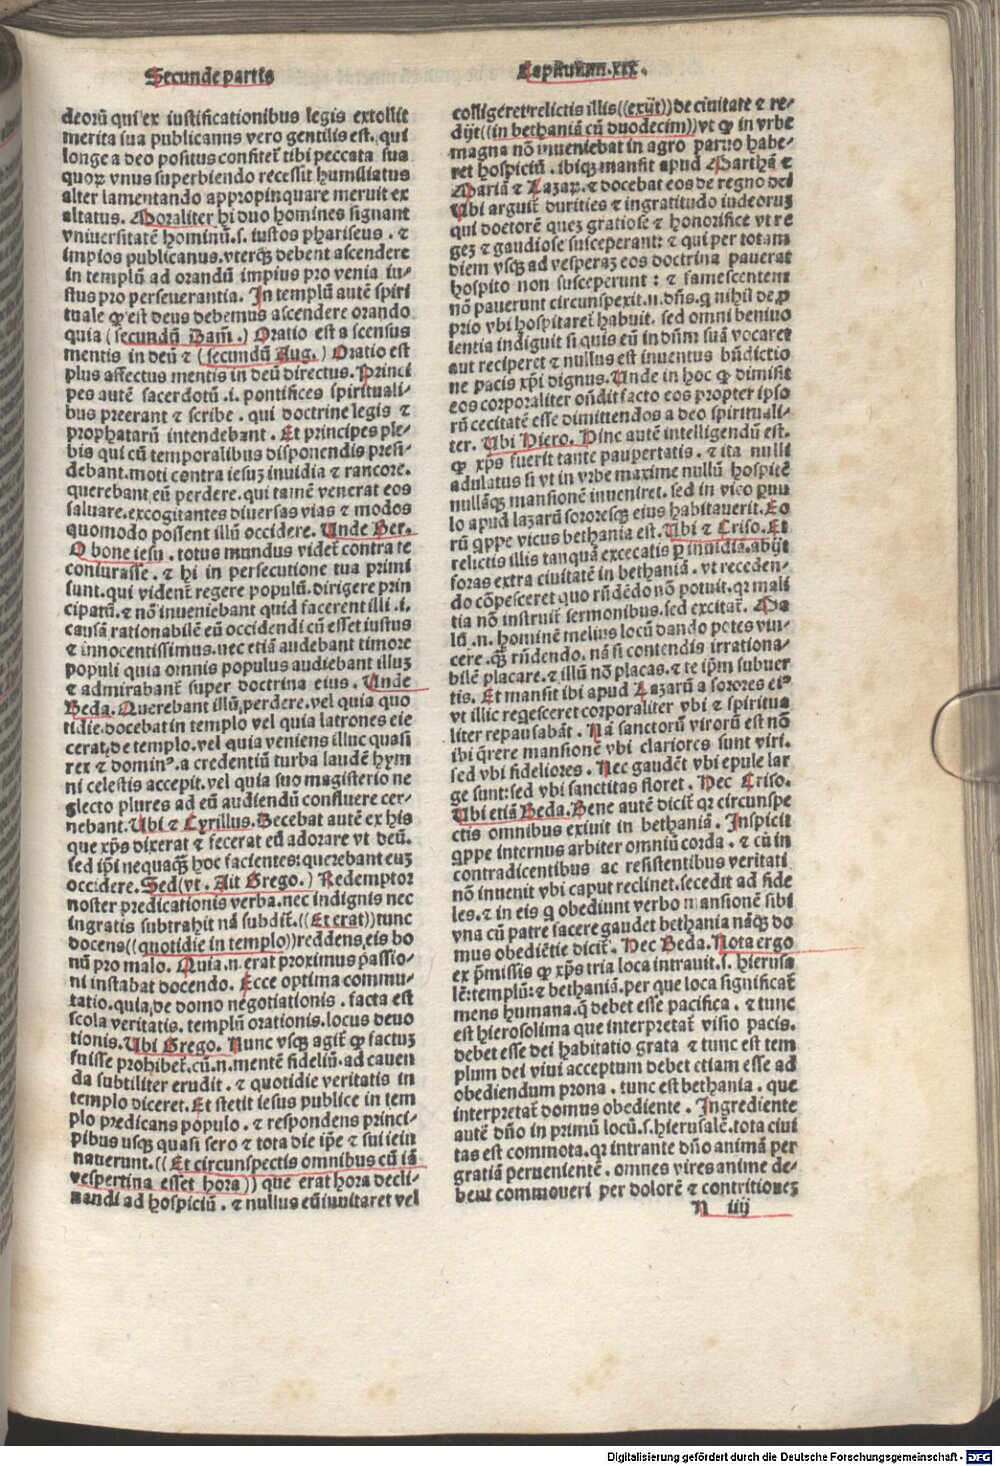 Secunde partis
Capitulum .xix.
deorū qui ex iustificationibus legis extollit
merita sua publicanus vero gentilis est. qui
longe a deo positus confitet̄ tibi peccata sua
quoꝝ vnus superbiendo recessit humiliatus
alter lamentando appropinquare meruit ex
altatus. Moraliter hi duo homines signant
vniuersitatē hominū.s. iustos phariseus . ⁊
impios publicanus.vterqꝫ debent ascendere
in templū ad orandū impius pro venia iu⸗
stus pro perseuerantia. In templū autē spiri
tuale qꝫ est deus debemus ascendere orando
quia (secundū Dam̄.) Oratio est ascensus
mentis in deū ⁊ (secundū Aug.) Oratio est
plus affectus mentis in deū directus. Princi
pes autē sacerdotū .i. pontifices spirituali⸗
bus preerant ⁊ scribe . qui doctrine legis ⁊
prophetarū intendebant . Et principes ple⸗
bis qui cū temporalibus disponendis presi⸗
debant.moti contra iesuꝫ inuidia ⁊ rancore.
querebant eū perdere. qui tamē venerat eos
saluare.excogitantes diuersas vias ⁊ modos
quomodo possent illū occidere. Unde Ber.
O bone iesu . totus mundus videt̄ contra te
coniurasse . ⁊ hi in persecutione tua primi
sunt.qui vident̄ regere populū.dirigere prin
cipatū.⁊ nō inueniebant quid facerent illi .i.
causā rationabilē eū occidendi cū esset iustus
⁊ innocentissimus.nec etiā audebant timore
populi quia omnis populus audiebant illuꝫ
⁊ admirabant̄ super doctrina eius . Unde
Beda. Querebant illū perdere.vel quia quo
tidie docebat in templo vel quia latrones eie
cerat de templo.vel quia veniens illuc quasi
rex ⁊ dominꝰ.a credentiū turba laudē hym
ni celestis accepit.vel quia suo magisterio ne
glecto plures ad eū audiendū confluere cer⸗
nebant.Ubi ⁊ Cyrillus.Decebat autē ex his
que xp̄s dixerat ⁊ fecerat eū adorare vt deū.
sed ip̄i nequaqꝫ hoc facientes:querebant euꝫ
occidere. Sed(vt . Ait Grego.) Redemptor
noster predicationis verba.nec indignis nec
ingratis subtrahit nā subdit̄.((Et erat))tunc
docens((quotidie in templo))reddens eis bo
nū pro malo. Quia.n.erat proximus passio⸗
ni instabat docendo. Ecce optima commu⸗
tatio.quia de domo negotiationis . facta est
scola veritatis. templū orationis.locus deuo
tionis.Ubi Grego. Nunc vsqꝫ agit̄ qꝫ factuꝫ
fuisse prohibet̄.cū.n.mentē fideliū.ad cauen
da subtiliter erudit . ⁊ quotidie veritatis in
templo diceret.Et stetit iesus publice in tem
plo predicans populo . ⁊ respondens princi⸗
pibus vsqꝫ quasi sero ⁊ tota die ip̄e ⁊ sui ieiu
nauerunt.((Et circunspectis omnibus cū iā
vespertina esset hora)) que erat hora decli⸗
nandi ad hospiciū . ⁊ nullus eū inuitaret vel
colligeret relictis illis((exijt))de ciuitate ⁊ re⸗
dijt((in bethaniā cū duodecim))vt qꝫ in vrbe
magna nō inueniebat in agro paruo habe⸗
ret hospiciū . ibiqꝫ mansit apud Marthā ⁊
Mariā ⁊ Lazaꝝ.⁊ docebat eos de regno dei
Ubi arguit̄ durities ⁊ ingratitudo iudeoruꝫ
qui doctorē queꝫ gratiose ⁊ honorifice vt re
geꝫ ⁊ gaudiose susceperant: ⁊ qui per totam
diem vsqꝫ ad vesperaꝫ eos doctrina pauerat
hospito non susceperunt : ⁊ famescentem
nō pauerunt circunspexit.n.dn̄s.q nihil de ꝓ
prio vbi hospitaret̄ habuit. sed omni beniuo
lentia indiguit si quis eū in domū suā vocaret
aut reciperet ⁊ nullus est inuentus bn̄dictio
ne pacis xp̄i dignus.Unde in hoc qꝫ dimisit
eos corporaliter on̄dit facto eos propter ipso
rū cecitatē esse dimittendos a deo spirituali⸗
ter. Ubi Hiero. Hinc autē intelligendū est.
qꝫ xp̄s fuerit tante paupertatis . ⁊ ita nulli
adulatus sit vt in vrbe maxime nullū hospitē
nullāqꝫ mansionē inueniret. sed in vico ꝑuu
lo apud lazarū sororesqꝫ eius habitauerit. Eo
rū qppe vicus bethania est.Ubi ⁊ Criso. Et
relictis illis tanquā excecatis ꝑ inuidia.abijt
foras extra ciuitatē in bethaniā . vt receden⸗
do cōpesceret quo rn̄dēdo nō potuit.qꝛ mali
tia nō instruit̄ sermonibus.sed excitat̄. Ma
lū .n. hominē melius locū dando potes vin⸗
cere .qꝫ rn̄dendo. nā si contendis irrationa⸗
bilē placare.⁊ illū nō placas.⁊ te ip̄m subuer
tis. Et mansit ibi apud Lazarū a sorores eiꝰ
vt illic regesceret corporaliter vbi ⁊ spiritua
liter repausabāt . Nā sanctorū virorū est nō
ibi q̄rere mansionē vbi clariores sunt viri.
sed vbi fideliores . Nec gaudēt vbi epule lar
ge sunt:sed vbi sanctitas floret . Hec Criso.
Ubi etiā Beda. Bene autē dicit̄ qꝛ circunspe
ctis omnibus exiuit in bethaniā . Inspicit
qppe internus arbiter omniū corda . ⁊ cū in
contradicentibus ac resistentibus veritati
nō inuenit vbi caput reclinet.secedit ad fide
les.⁊ in eis q obediunt verbo mansionē sibi
vna cū patre facere gaudet bethania nāqꝫ do
mus obediētie dicit̄ . Hec Beda. Nota ergo
ex p̄missis qꝫ xp̄s tria loca intrauit.s. hierusa
lē:templū:⁊ bethaniā.per que loca significat̄
mens humana.q̄ debet esse pacifica . ⁊ tunc
est hierosolima que interpretat̄ visio pacis.
debet esse dei habitatio grata ⁊ tunc est tem
plum dei viui acceptum debet etiam esse ad
obediendum prona . tunc est bethania . que
interpretat̄ domus obediente . Ingrediente
autē dn̄o in primū locū.s.hierusalē.tota ciui
tas est commota.qꝛ intrante dn̄o animā per
gratiā peruenientē . omnes vires anime de⸗
bent commoveri per dolorē ⁊ contritioneꝫ
N iiij
Digitalisierung gefördert durch die Deutsche Forschungsgemeinschaft - DFG